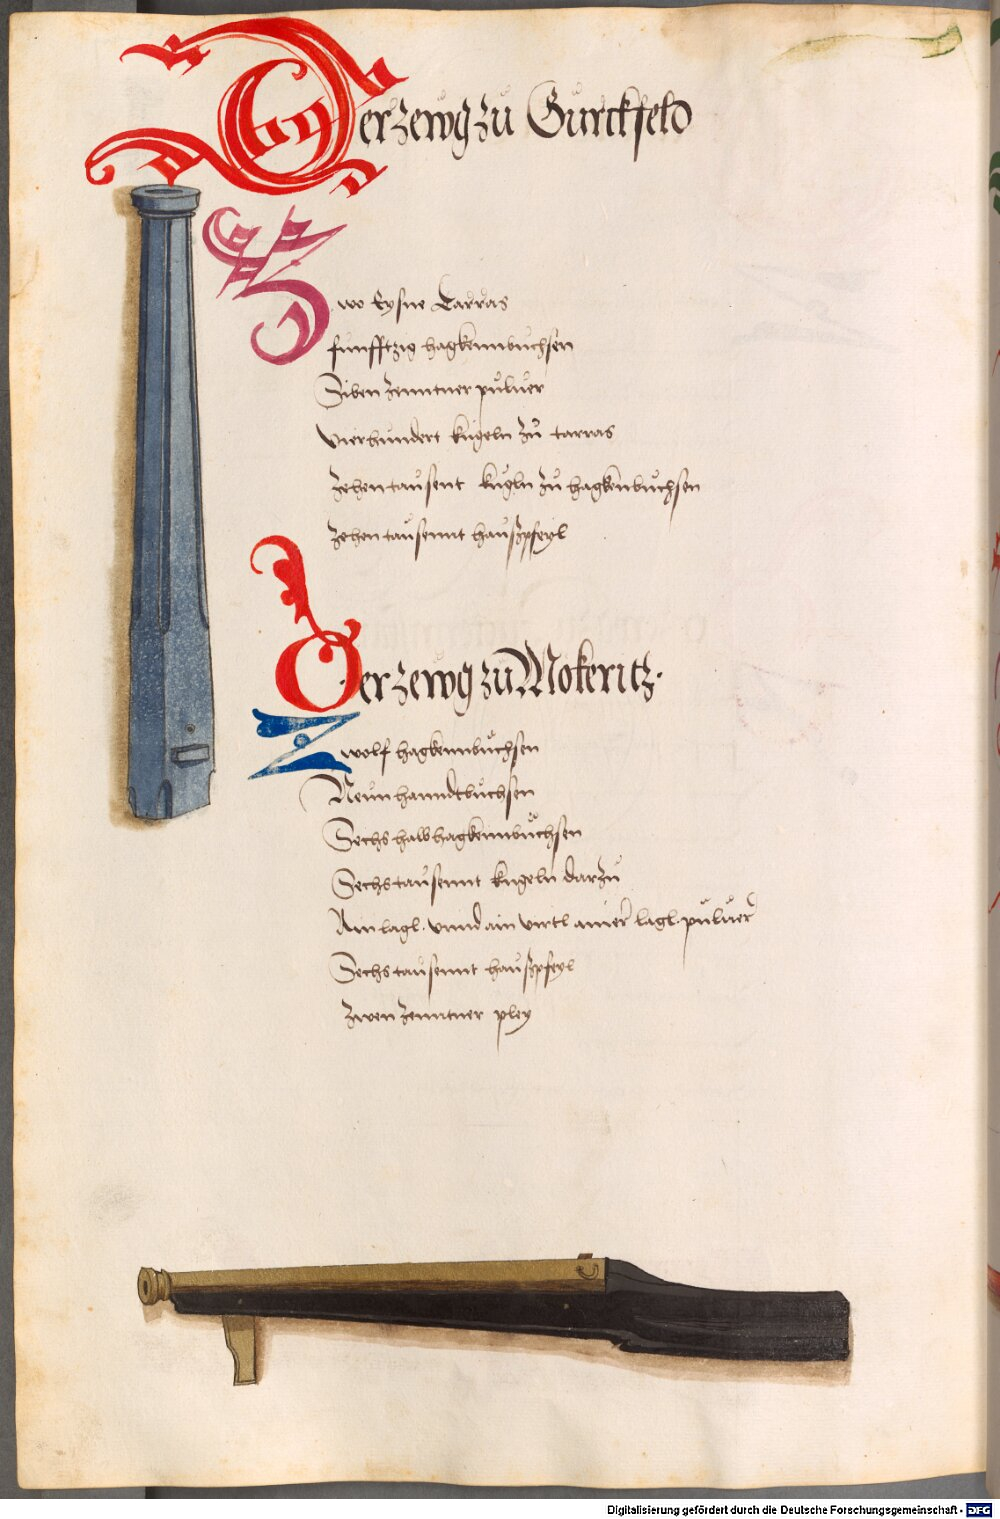 Der zewg zů Gurckfeld
Zwo Eysne Tarras
funfftzig hagkennbuchsen
Siben zenntner puluer
vierhundert kugeln zů tarras
zehentausent kugln zů hagkenbuchsen
zehentausennt hauszpfeyl
Der zewg zů Mokeritz.
Zwolf hagkennbuchsen
Neun hanndtbuchsen
Sechs halb hagkennbuchsen
Sechstausennt kugeln darzů
Ain lagl. vnnd ain virtl ainer lagl. puluer
Sechstausennt hauszpfeyl
zwen zenntner pley
Digitalisierung gefördert durch die Deutsche Forschungsgemeinschaft - DFG